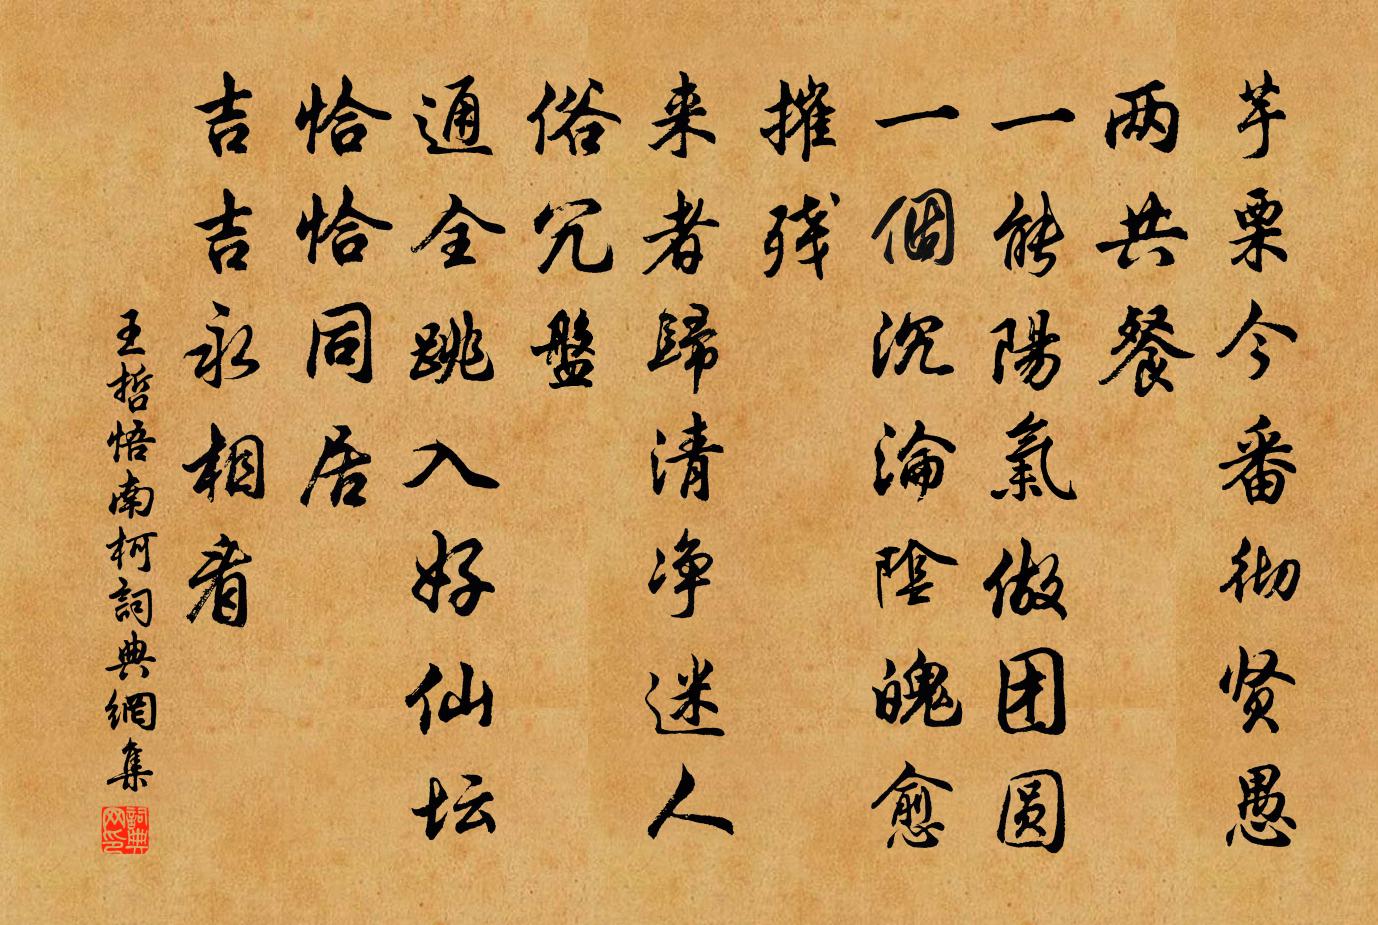 芋栗今番彻贤愚
两共餐
一能陽氣做团圆
一個沉淪陰魄愈
摧残
来者歸清净迷人
俗冗盤
通全跳入好仙坛
恰恰同居
吉吉永相看
王哲悟南柯詞典網集
詞典网印